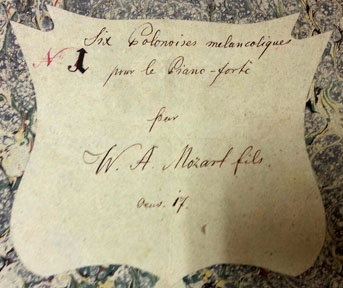 Six Polonoises melancoliques
N 1
pour le Piano-forté
par
W. A. Mozart fils.
Oeuv. 17.